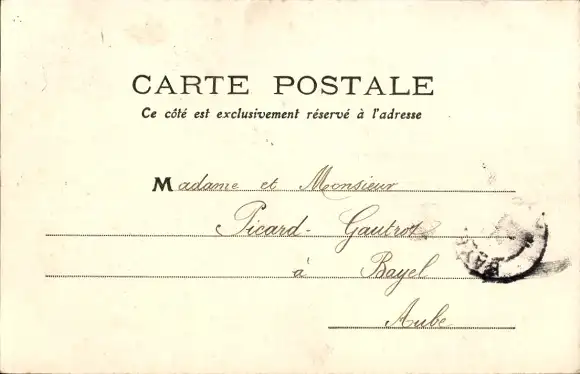 CARTE POSTALE
Ce côté est exclusivement réservé à l'adresse
Madame et Monsieur
Picard-Gautrot
à Bayel
Aube
BAY